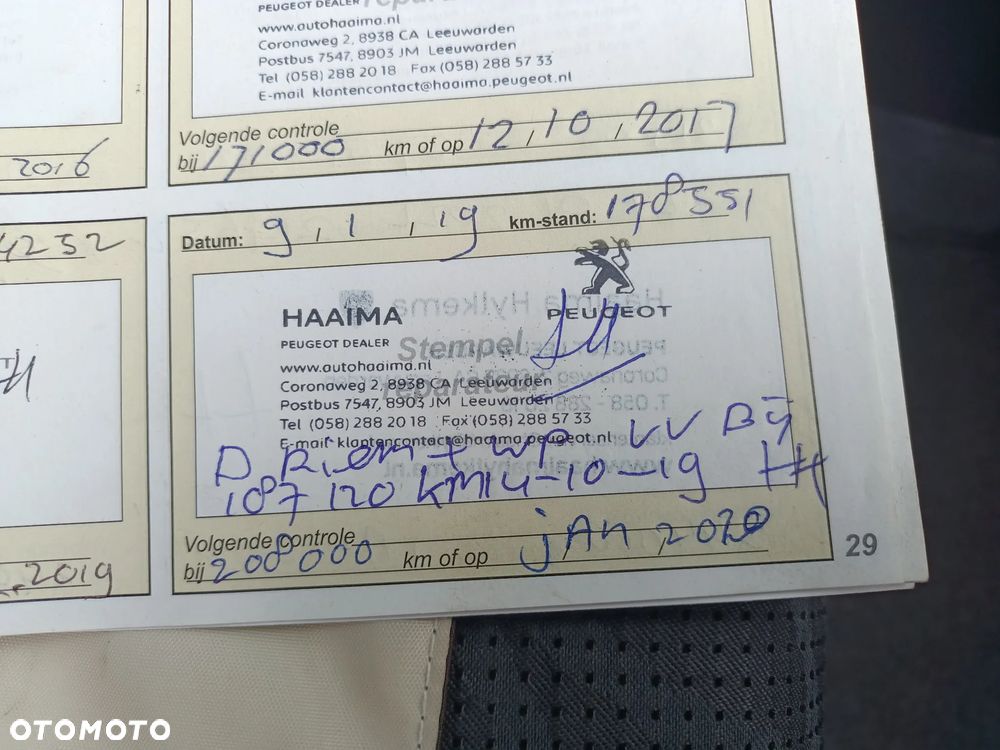 PEUGEOT DEALER
www.autohaaima.nl
Coronaweg 2, 8938 CA Leeuwarden
Postbus 7547, 8903 JM Leeuwarden
Tel (058) 288 20 18 Fax (058) 288 57 33
E-mail klantencontact@haaima.peugeot.nl
Volgende controle
bij 171000 km of op 12, 10, 2017
2016
4252
2019
Datum: 9, 1, 19 km-stand: 178551
HAAIMA
PEUGEOT
PEUGEOT DEALER
Stempel
www.autohaaima.nl
reparateur
Coronaweg 2, 8938 CA Leeuwarden
Postbus 7547, 8903 JM Leeuwarden
Tel (058) 288 20 18 Fax (058) 288 57 33
E-mail klantencontact@haaima.peugeot.nl
D Riem + WP VV Bij
187120 KM 14-10-19
Volgende controle
bij 208000 km of op JAN 2020
29
OTOMOTO